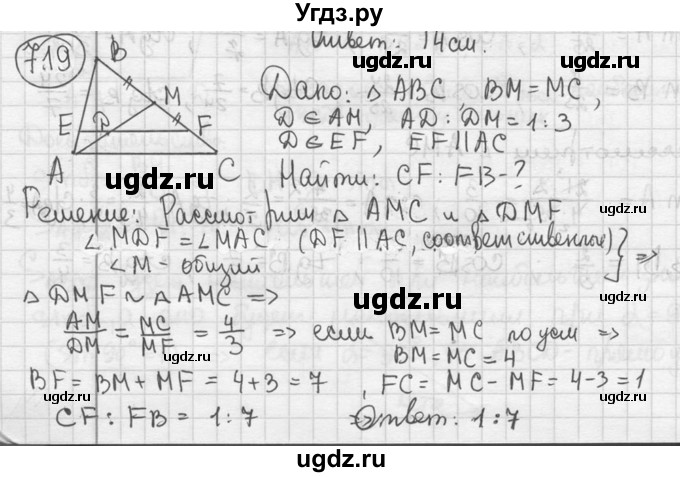 Угдз.ру
Ответ: 14 см.
7.19
B
M
E
D
F
A
C
Дано: △ ABC, BM = MC,
D ∈ AM, AD : DM = 1 : 3
D ∈ EF, EF ∥ AC
Найти: CF : FB - ?
Решение: Рассмотрим △ AMC и △ DMF
∠ MDF = ∠ MAC (DF ∥ AC, соответственные) } =>
∠ M - общий
△ DMF ~ △ AMC =>
AM/DM = MC/MF = 4/3 => если BM = MC по усл =>
BM = MC = 4
BF = BM + MF = 4 + 3 = 7, FC = MC - MF = 4 - 3 = 1
CF : FB = 1 : 7 Ответ: 1 : 7
угдз.ру
ugdz.ru
ugdz.ru
ugdz.ru
ugdz.ru
ugdz.ru
ugdz.ru
ugdz.ru
ugdz.ru
ugdz.ru